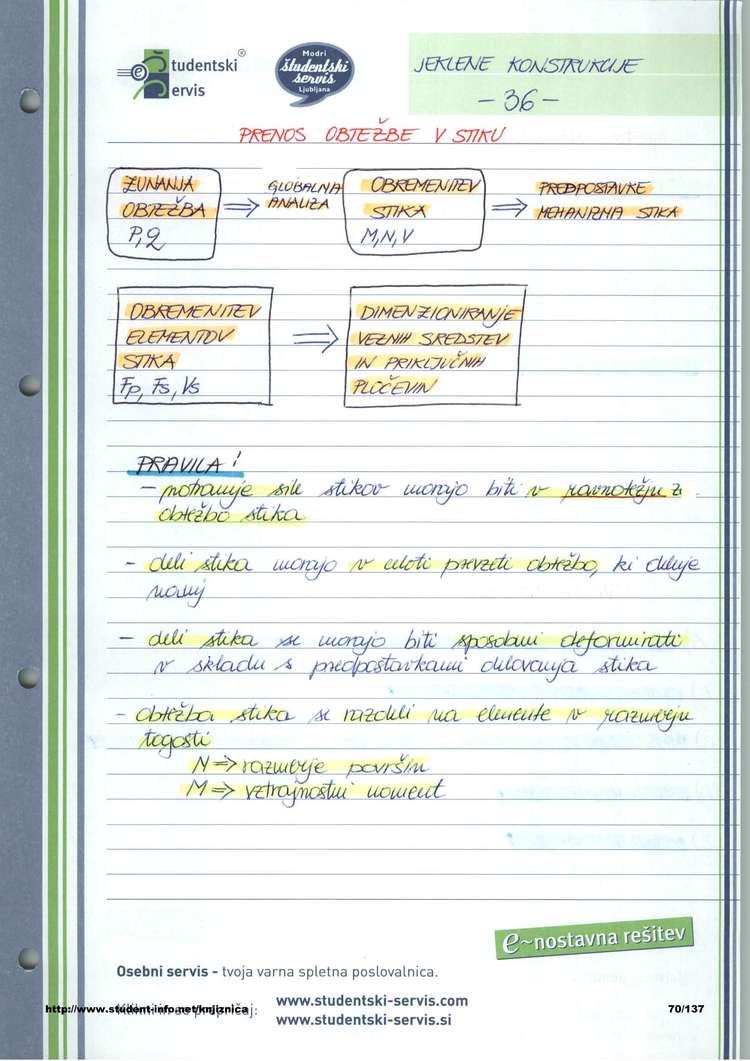 Študentski Servis®
Modri študentski servis Ljubljana
JEKLENE KONSTRUKCIJE
- 36 -
PRENOS OBTEŽBE V STIKU
ZUNANJA OBTEŽBA P, Q ⇒ GLOBALNA ANALIZA
OBREMENITEV STIKA M, N, V ⇒ PREDPOSTAVKE MEHANIZMA STIKA
OBREMENITEV ELEMENTOV STIKA Fp, Fs, Vs ⇒
DIMENZIONIRANJE VEZNIH SREDSTEV IN PRIKLJUČNIH PLOČEVIN
PRAVILA:
- notranje sile stikov morajo biti v ravnotežju z
obtežbo stika
- deli stika morajo v celoti prevzeti obtežbo, ki deluje
nanj
- deli stika se morajo biti sposobni deformirati
v skladu s predpostavkami delovanja stika
- obtežba stika se razdeli na elemente v razmerju
togosti
N ⇒ razmerje površin
M ⇒ vztrajnostni moment
e~nostavna rešitev
Osebni servis - tvoja varna spletna poslovalnica.
http://www.student-info.net/knjiznica
www.studentski-servis.com
www.studentski-servis.si
70/137